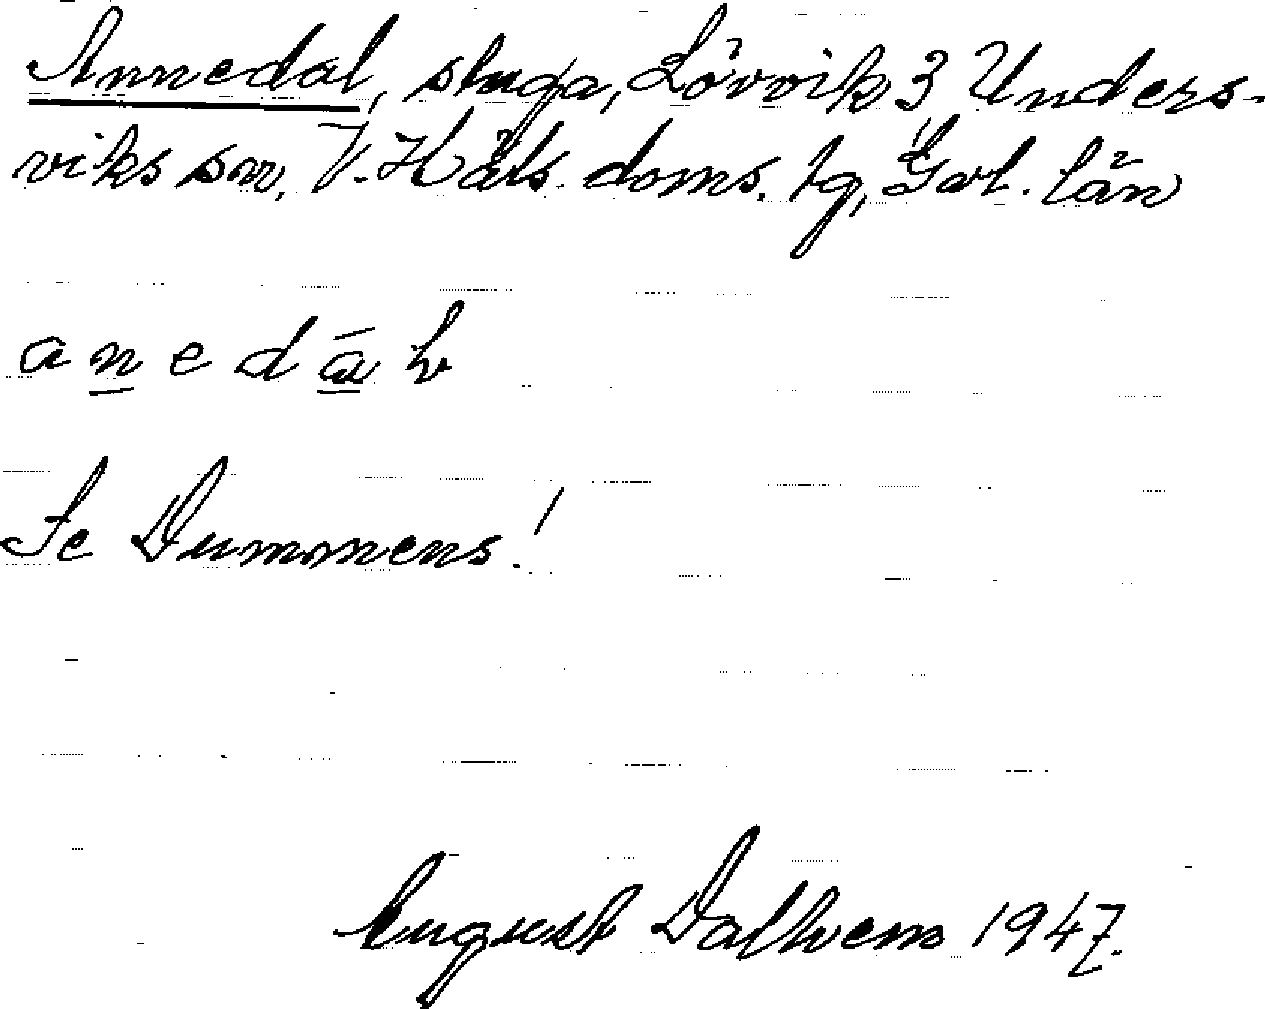 Annedal, stuga, Lövvik 3 Unders-
viks sn, V. Häls. doms. tg, Gävl. län
a n e d ā l
Se Dummens!
August Dalhem 1947.